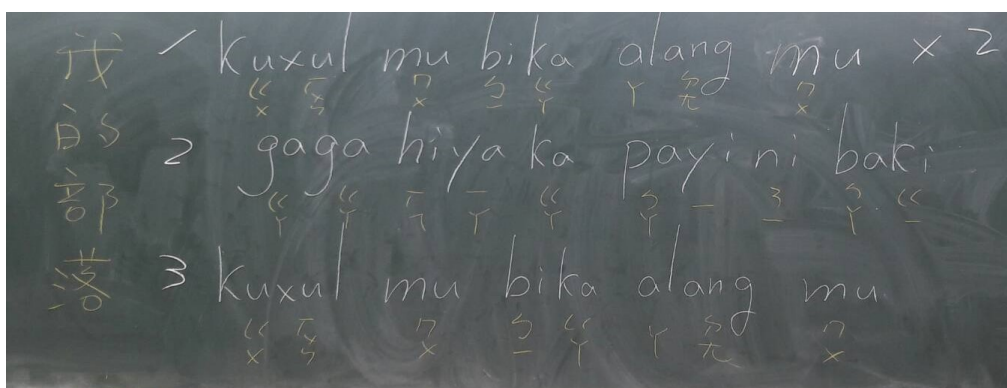 我的部落
1 kuxul mu bika alang mu x 2
ㄍㄨ ㄏㄨㄣ ㄇㄨ ㄅㄧ ㄍㄚ ㄚ ㄌㄤ ㄇㄨ
2 gaga hiya ka payi ni baki
ㄍㄚ ㄍㄚ ㄧㄚ ㄍㄚ ㄅㄚ ㄧ ㄋㄧ ㄅㄚ ㄍㄧ
3 kuxul mu bika alang mu
ㄍㄨ ㄏㄨㄣ ㄇㄨ ㄅㄧ ㄍㄚ ㄚ ㄌㄤ ㄇㄨ